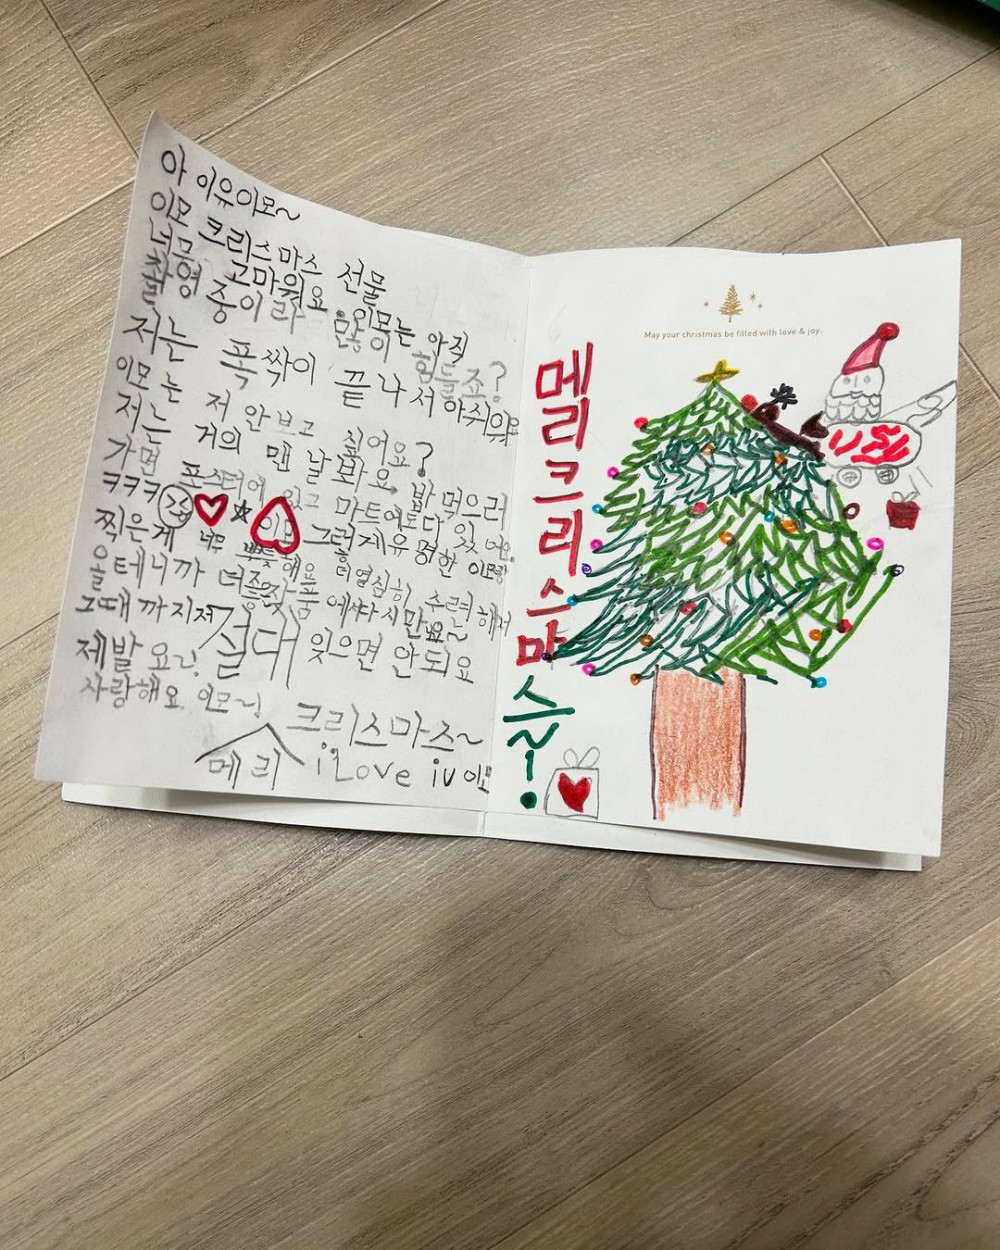 아 이유이모~
이모 크리스마스 선물
너무 고마워요. 이모는 아직
촬영 중이라 많이 힘들죠?
저는 폭싹이 끝나서 아쉬워요
이모는 저 안보고 싶어요?
저는 거의 맨날 봐요. 밥 먹으러
가면 포스터에 있고 마트에도 다 있어요.
ㅋㅋㅋ 이모 그렇게 유명한 이모랑
찍은게 너무 뿌듯해요 더 열심히 수련해서
올테니까 더 좋은 작품에서 다시 만나요~
그때까지 저 절대 잊으면 안되요
제발요!
사랑해요 이모~!
메리 크리스마스~
i Love iu 이모
May your christmas be filled with love & joy.
메리크리스마스~!